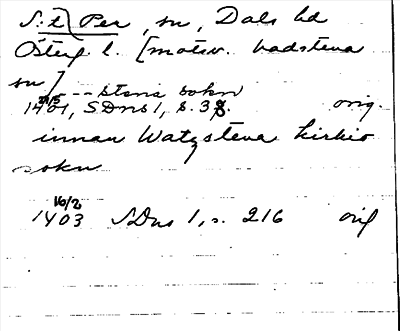 S:t Per, sn, Dals hd
Österg l. [motsv. Vadstena
sn] --- stena sokn
1401 29/5, SDns 1, s. 38. orig.
innan Watzstena kirkio
sokn
1403 16/2 SDns 1, s. 216 orig